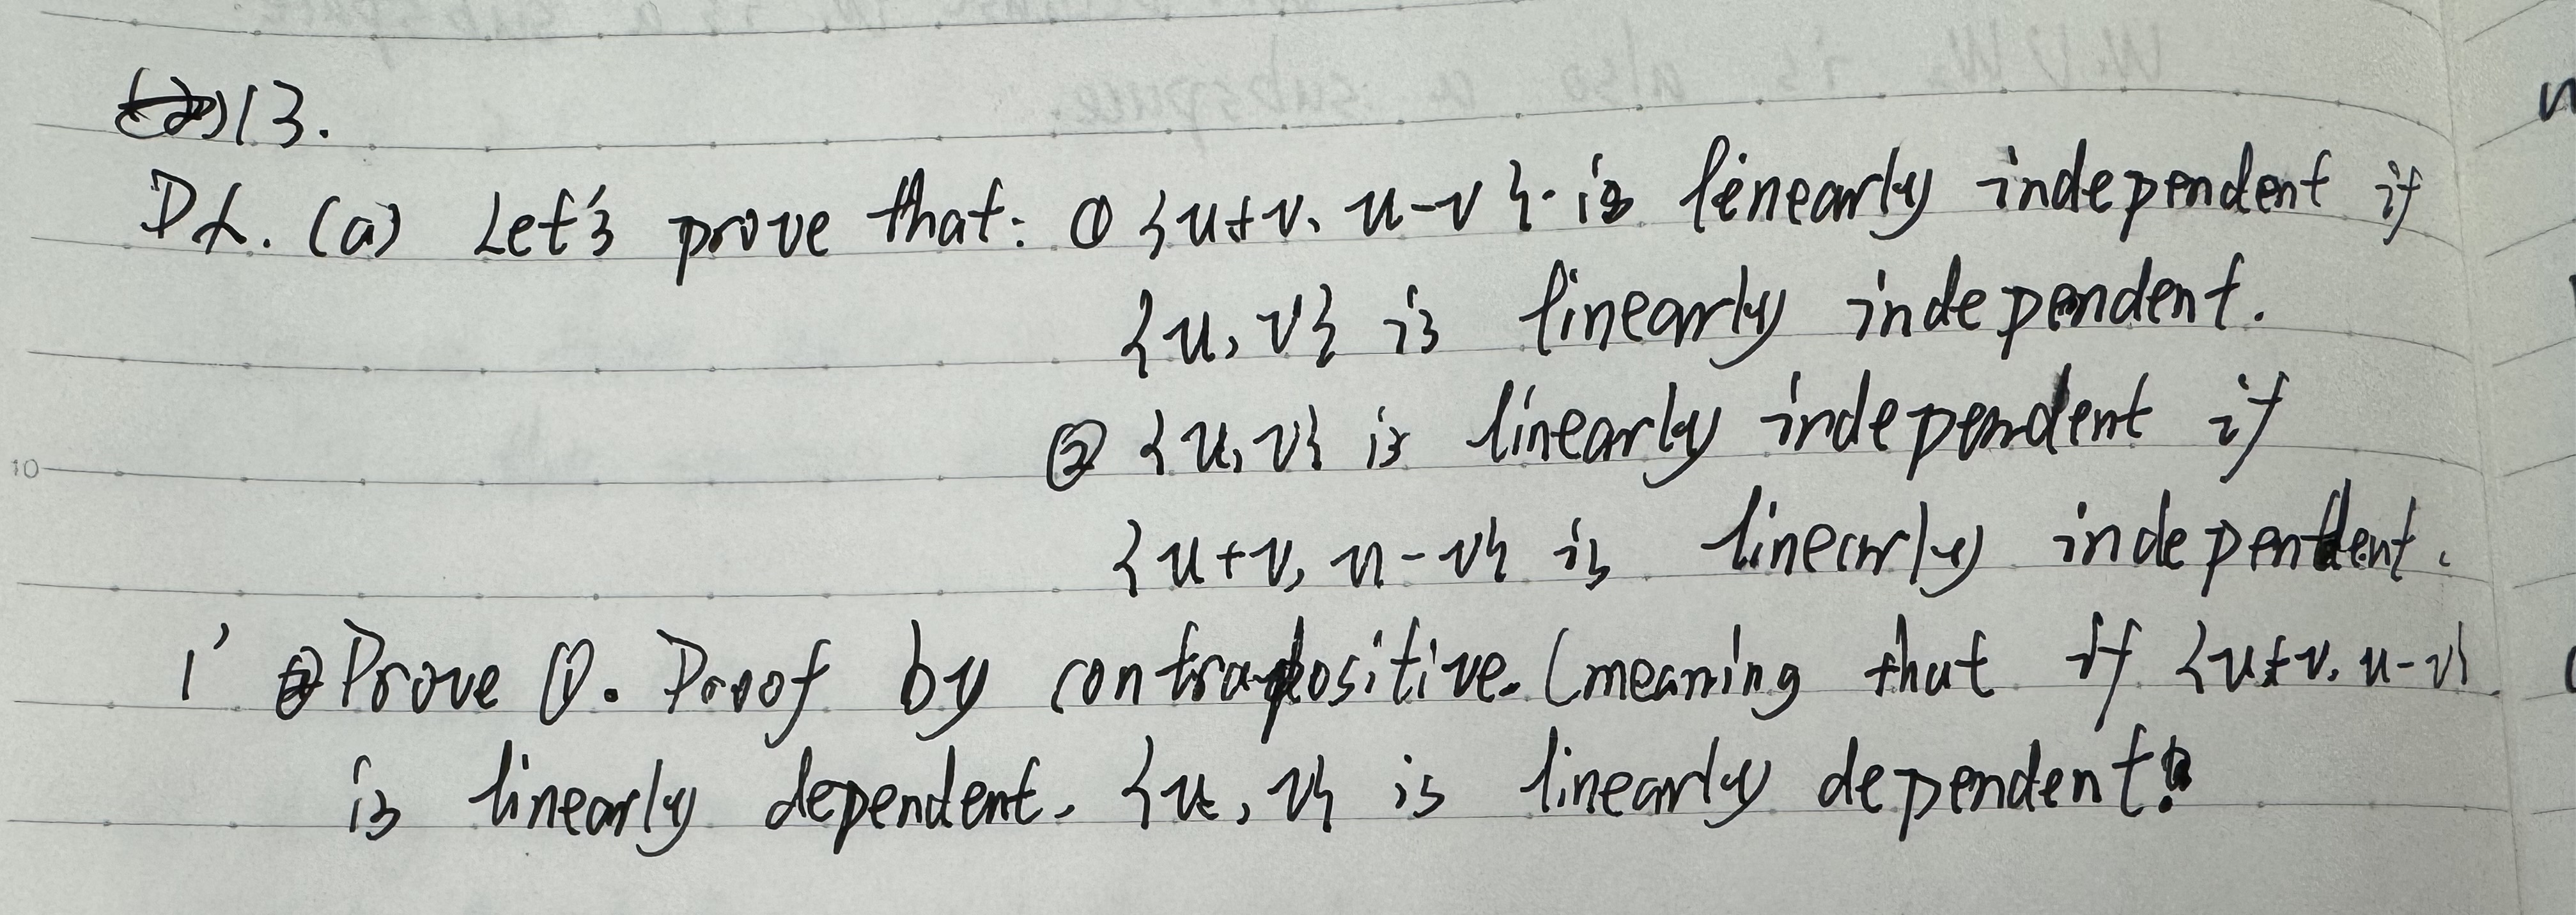 13.
Pf. (a) Let's prove that: ① {u+v, u-v} is linearly independent if
{u, v} is linearly independent.
② {u, v} is linearly independent if
{u+v, u-v} is linearly independent.
1' Prove ①. Proof by contrapositive. (meaning that if {u+v, u-v}
is linearly dependent, {u, v} is linearly dependent)
10